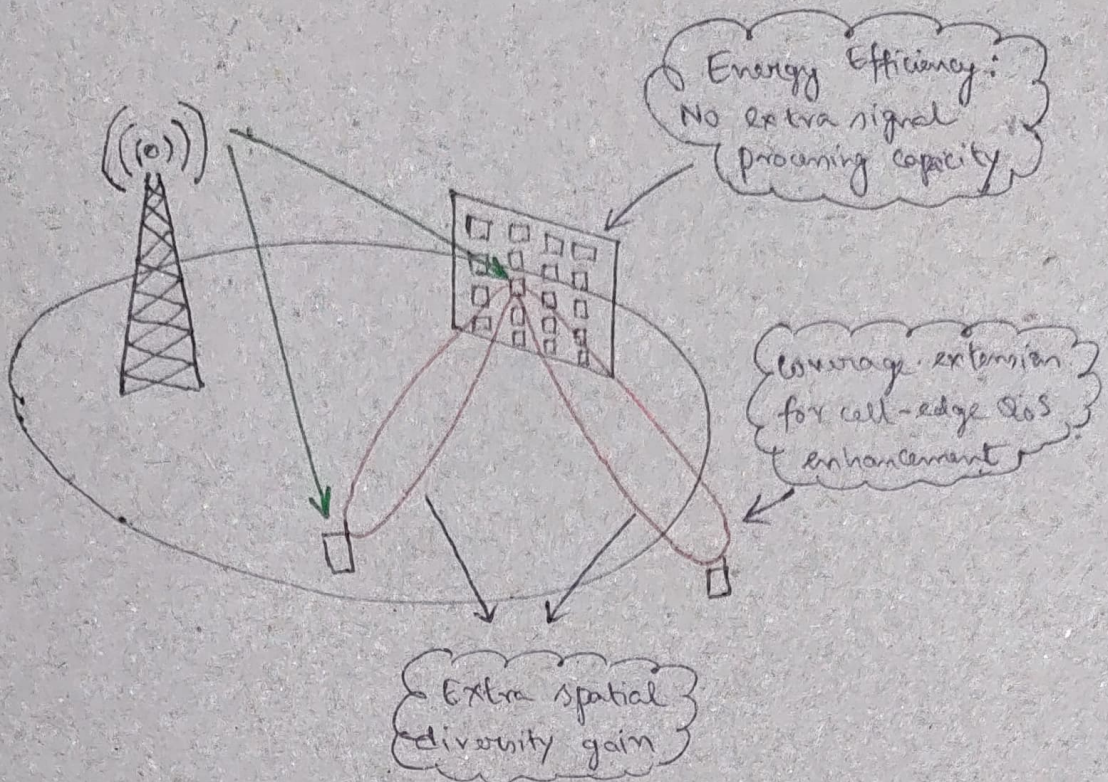 Energy Efficiency:
No extra signal
processing capacity
coverage extension
for cell-edge QoS
enhancement
Extra spatial
diversity gain